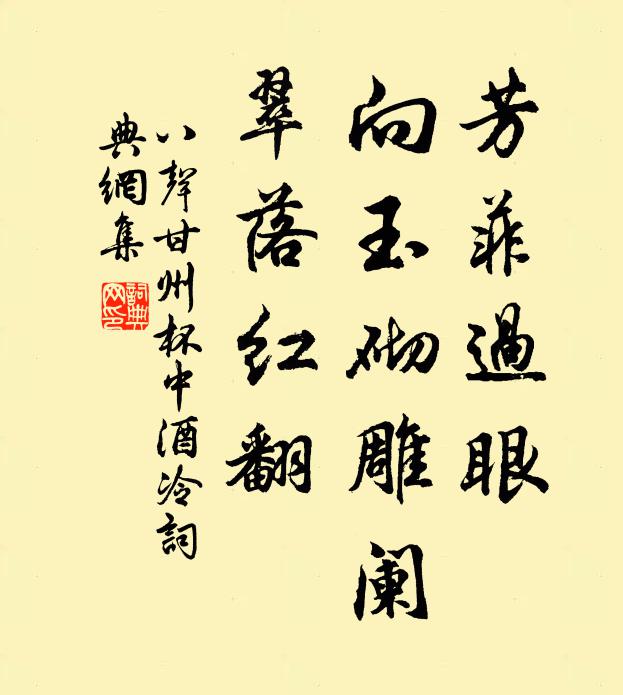 芳菲過眼
向玉砌雕阑
翠落红翻
八聲甘州杯中酒冷詞
典網集
詞典网印